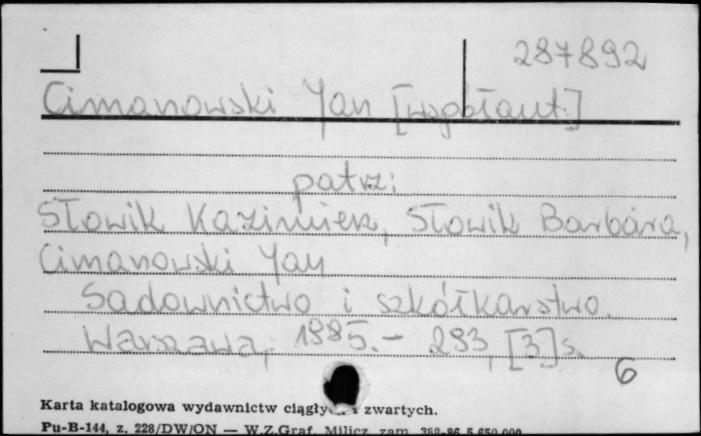 287892
Cimanowski Jan [współaut.]
patrz:
Słowik Kazimierz, Słowik Barbara,
Cimanowski Jan
Sadownictwo i szkółkarstwo.
Warszawa, 1985.- 293, [3] s.
6
Karta katalogowa wydawnictw zwartych.
Pu-B-144, z. 228/DW/ON — W.Z.Graf. Milicz zam.